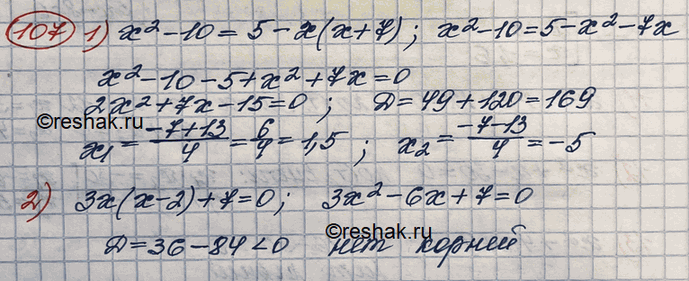 107 1) x² - 10 = 5 - x(x+7); x² - 10 = 5 - x² - 7x
x² - 10 - 5 + x² + 7x = 0
2x² + 7x - 15 = 0; D = 49 + 120 = 169
©reshak.ru
x₁ = (-7+13)/4 = 6/4 = 1,5; x₂ = (-7-13)/4 = -5
2) 3x(x-2) + 7 = 0; 3x² - 6x + 7 = 0
©reshak.ru
D = 36 - 84 < 0 нет корней